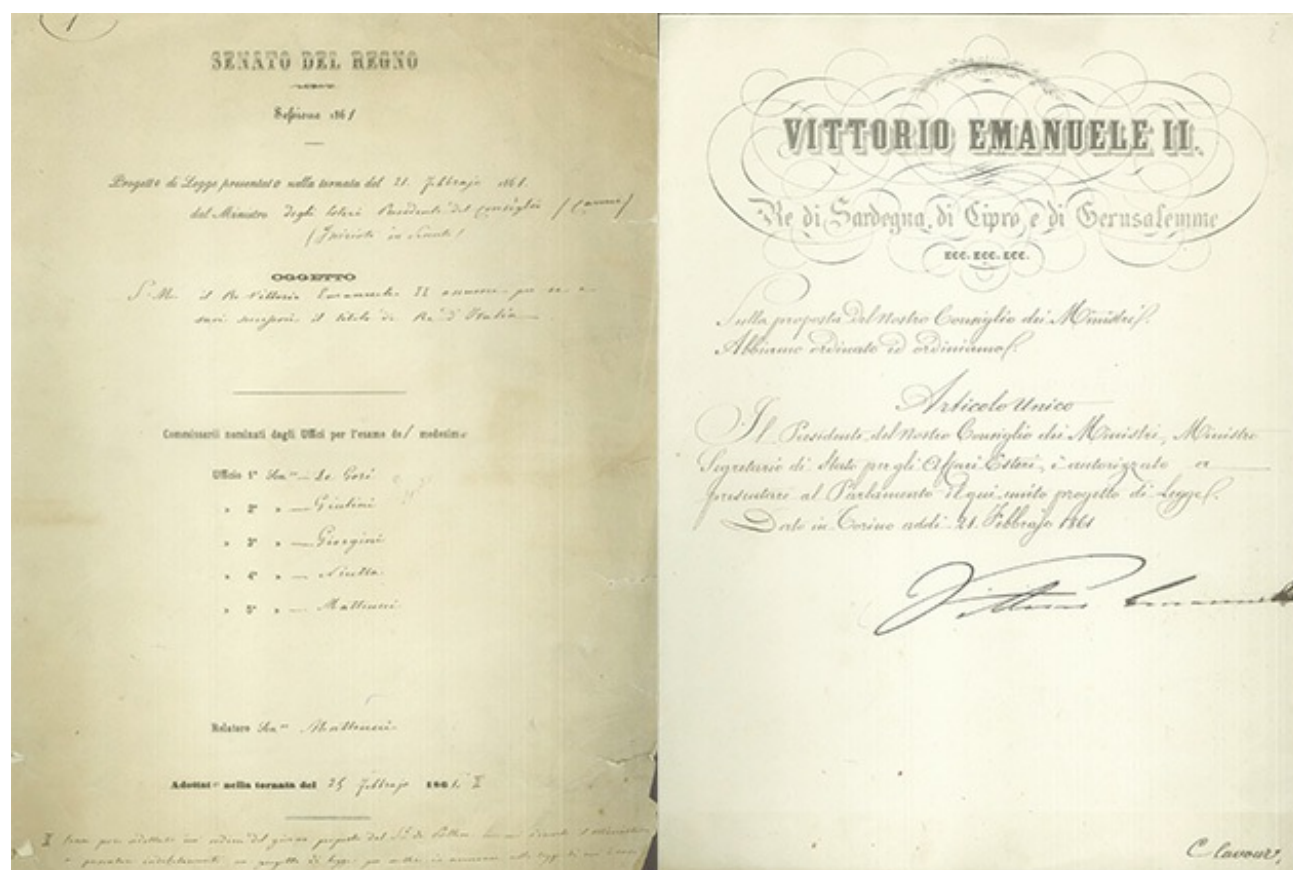 SENATO DEL REGNO
Sessione 1861
Progetto di Legge presentato nella tornata del 21. Febbrajo 1861.
dal Ministro degli Esteri Presidente del Consiglio (Cavour)
(Iniziato in Senato)
OGGETTO
S. M. il Re Vittorio Emanuele II assume per se e
suoi successori il titolo di Re d'Italia
Commissarii nominati dagli Uffici per l'esame del medesimo
Ufficio 1° Sen.re De Gori
» 2° » Giulini
» 3° » Giorgini
» 4° » Nicetta
» 5° » Matteucci
Relatore Sen.re Matteucci
Adottato nella tornata del 25 Febbrajo 1861. X
X ordine del giorno proposto dal
a presentare un progetto di legge per
2
VITTORIO EMANUELE II.
Re di Sardegna, di Cipro e di Gerusalemme
ECC. ECC. ECC.
Sulla proposta del Nostro Consiglio dei Ministri.
Abbiamo ordinato ed ordiniamo.
Articolo Unico
Il Presidente del Nostro Consiglio dei Ministri, Ministro
Segretario di Stato per gli Affari Esteri, è autorizzato a
presentare al Parlamento il qui unito progetto di legge.
Dato in Torino addì 21. Febbrajo 1861
Vittorio Emanuele
C Cavour,